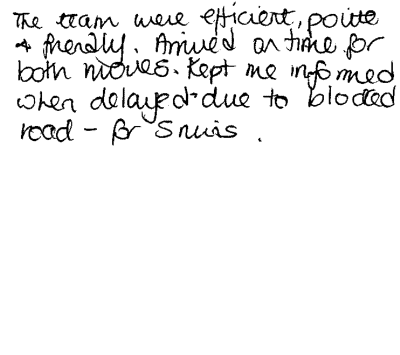 The team were efficient, polite
+ friendly. Arrived on time for
both moves. Kept me informed
when delayed due to blocked
road - for 5 mins.